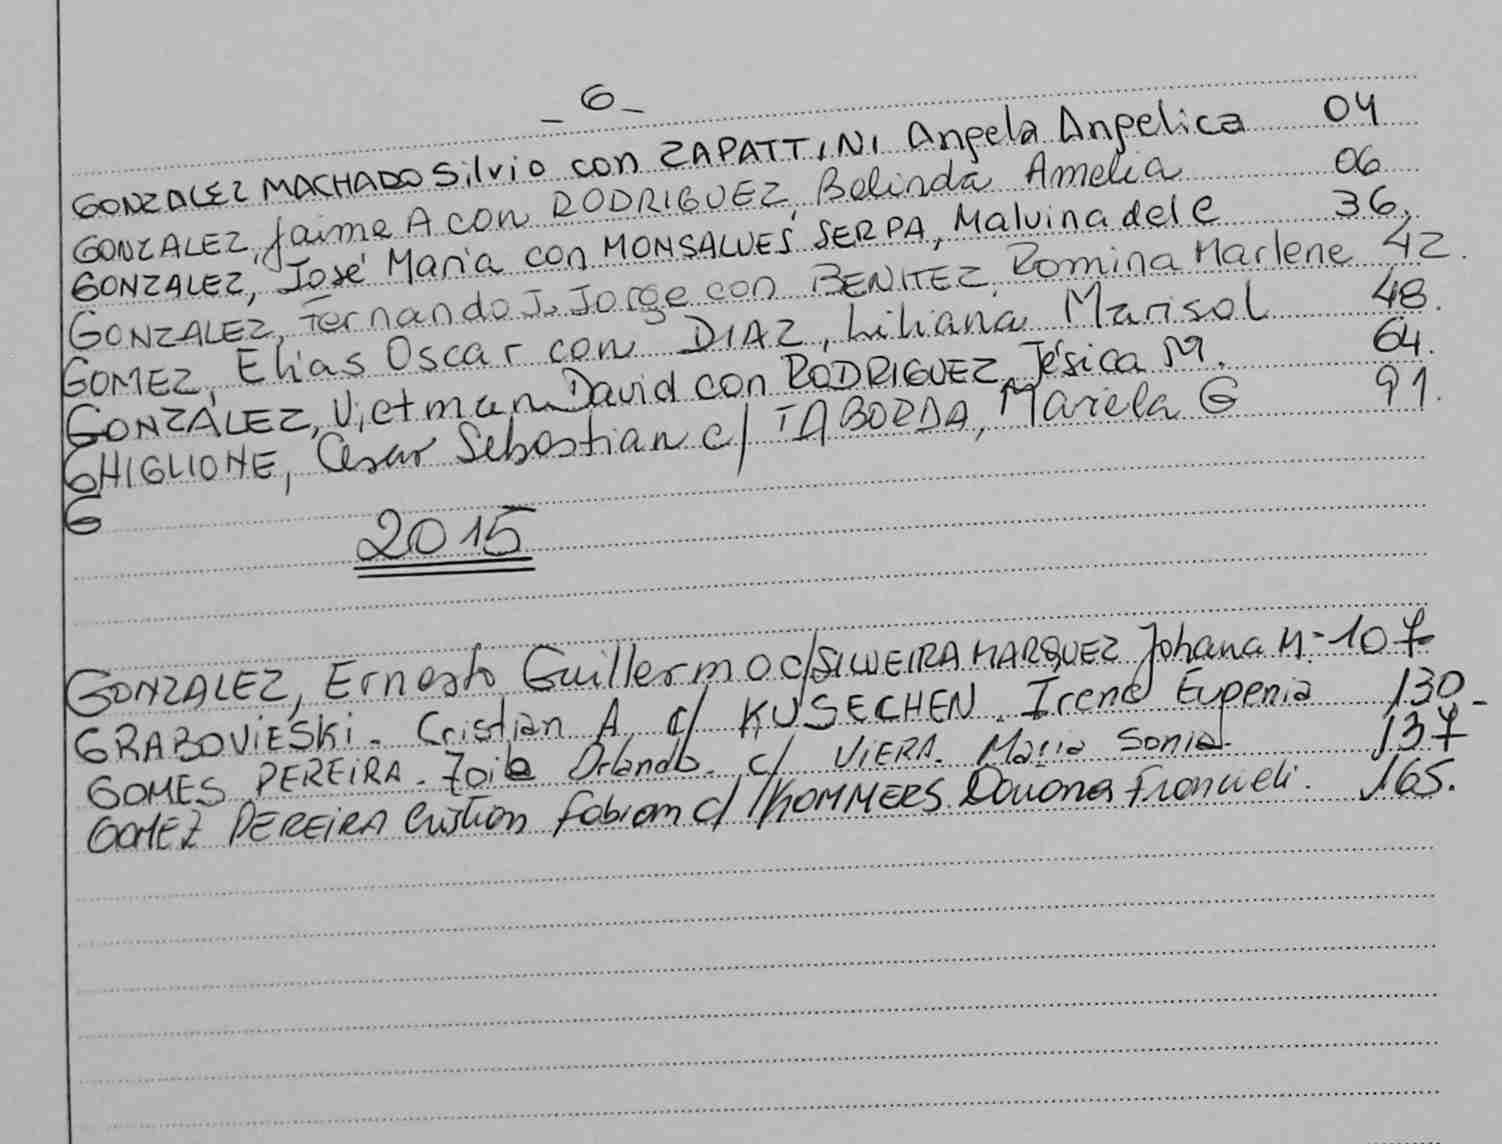 _ G _
GONZALEZ MACHADO Silvio con ZAPATTINI Angela Angelica 04
GONZALEZ, Jaime A con RODRIGUEZ, Belinda Amelia 06
GONZALEZ, José María con MONSALVES SERPA, Malvina del C 36,
GONZALEZ, Fernando J. Jorge con BENITEZ, Romina Marlene 42.
GOMEZ, Elias Oscar con DIAZ, Liliana Marisol 48.
GONZÁLEZ, Victman David con RODRIGUEZ, Jésica M. 64.
GHIGLIONE, Cesar Sebastian c/ TABORDA, Mariela G 91.
G
2015
GONZALEZ, Ernesto Guillermo c/ SILVEIRA MARQUEZ Johana M.- 107
GRABOVIESKi. Cristian A. c/ KUSECHEN. Irene Eugenia 130-
GOMES PEREiRA. Orlando. c/ ViERA. Maria Sonia. 137
GOMEZ PEREiRA Cristian Fabian c/ 165.